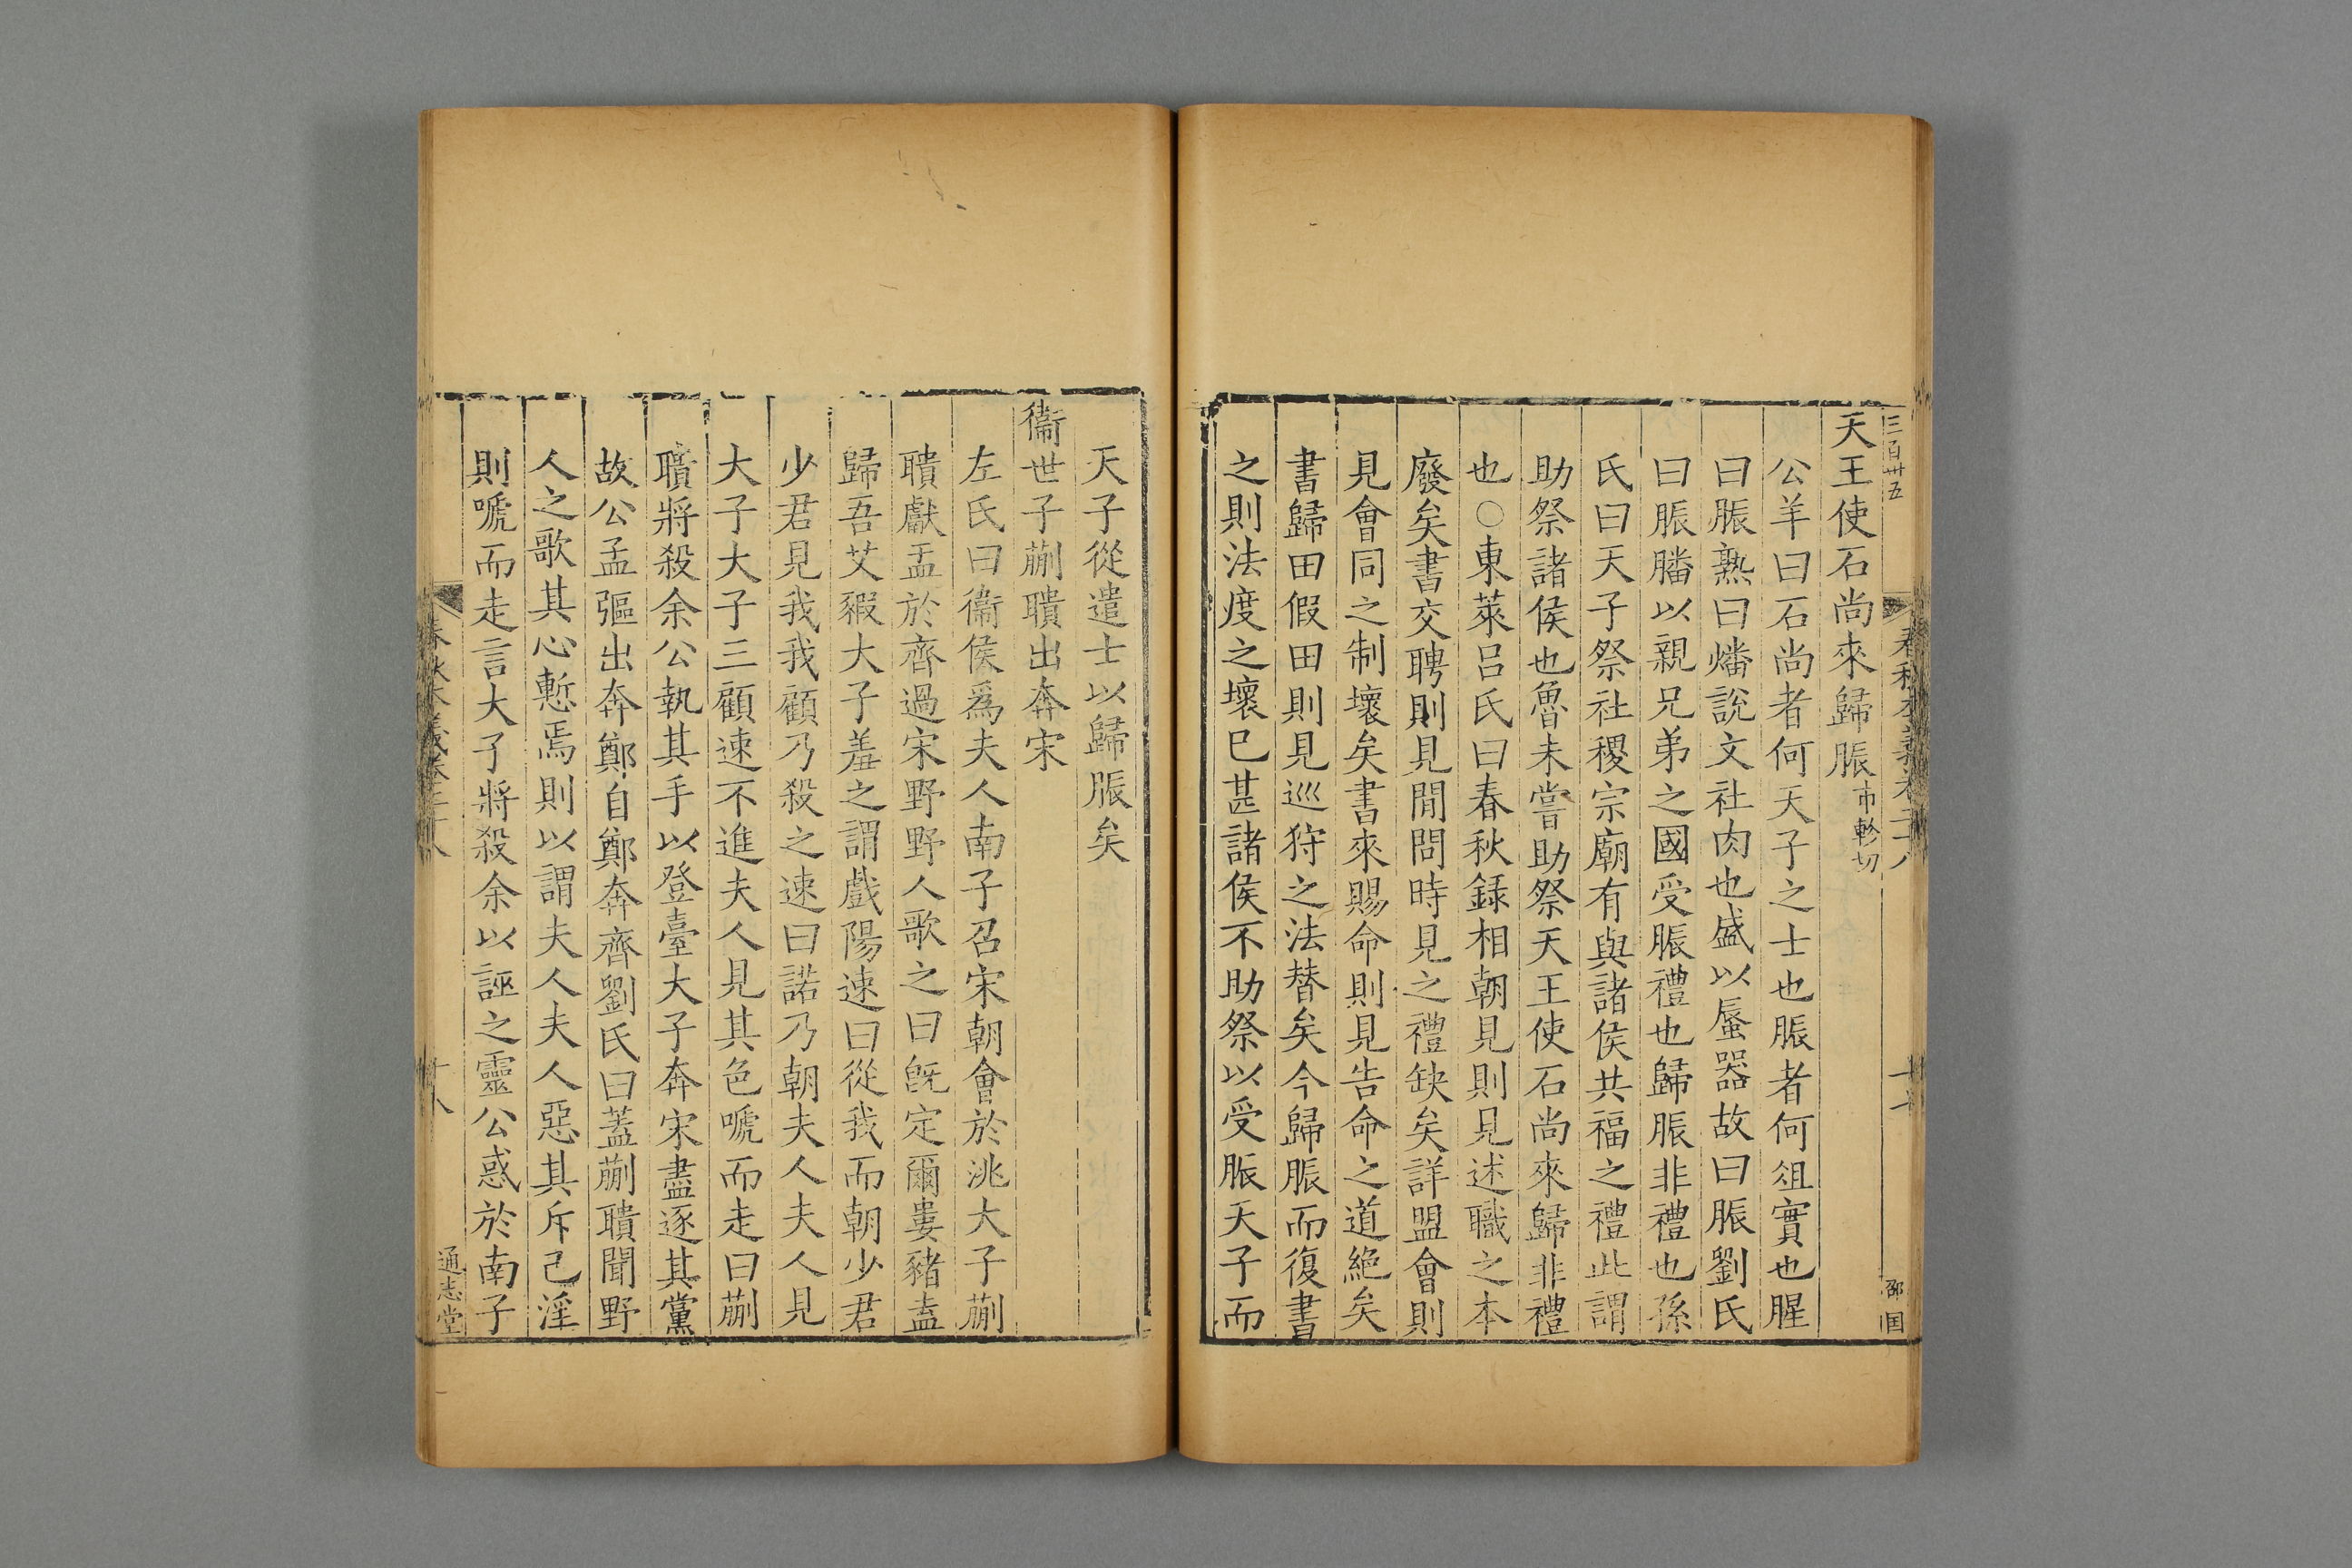 三百卅五
天王使石尚來歸脤市軫切
公羊曰石尚者何天子之士也脤者何俎實也腥
曰脤熟曰燔說文社肉也盛以蜃器故曰脤劉氏
曰脤膰以親兄弟之國受脤禮也歸脤非禮也孫
氏曰天子祭社稷宗廟有與諸侯共福之禮此謂
助祭諸侯也魯未嘗助祭天王使石尚來歸非禮
也○東萊呂氏曰春秋録相朝見則見述職之本
廢矣書交聘則見閒問時見之禮缺矣詳盟會則
見會同之制壞矣書來賜命則見告命之道絶矣
書歸田假田則見巡狩之法替矣今歸脤而復書
之則法度之壞已甚諸侯不助祭以受脤天子而
春秋本義卷二十八
十七
天子從遣士以歸脤矣
衞世子蒯聵出奔宋
左氏曰衞侯爲夫人南子召宋朝會於洮大子蒯
聵獻盂於齊過宋野野人歌之曰旣定爾婁豬盍
歸吾艾豭大子羞之謂戲陽速曰從我而朝少君
少君見我我顧乃殺之速曰諾乃朝夫人夫人見
大子大子三顧速不進夫人見其色嗁而走曰蒯
聵將殺余公執其手以登臺大子奔宋盡逐其黨
故公孟彄出奔鄭自鄭奔齊劉氏曰蓋蒯聵聞野
人之歌其心慙焉則以謂夫人夫人惡其斥己淫
則嗁而走言大子將殺余以誣之靈公惑於南子
春秋本義卷二十八
十八
通志堂